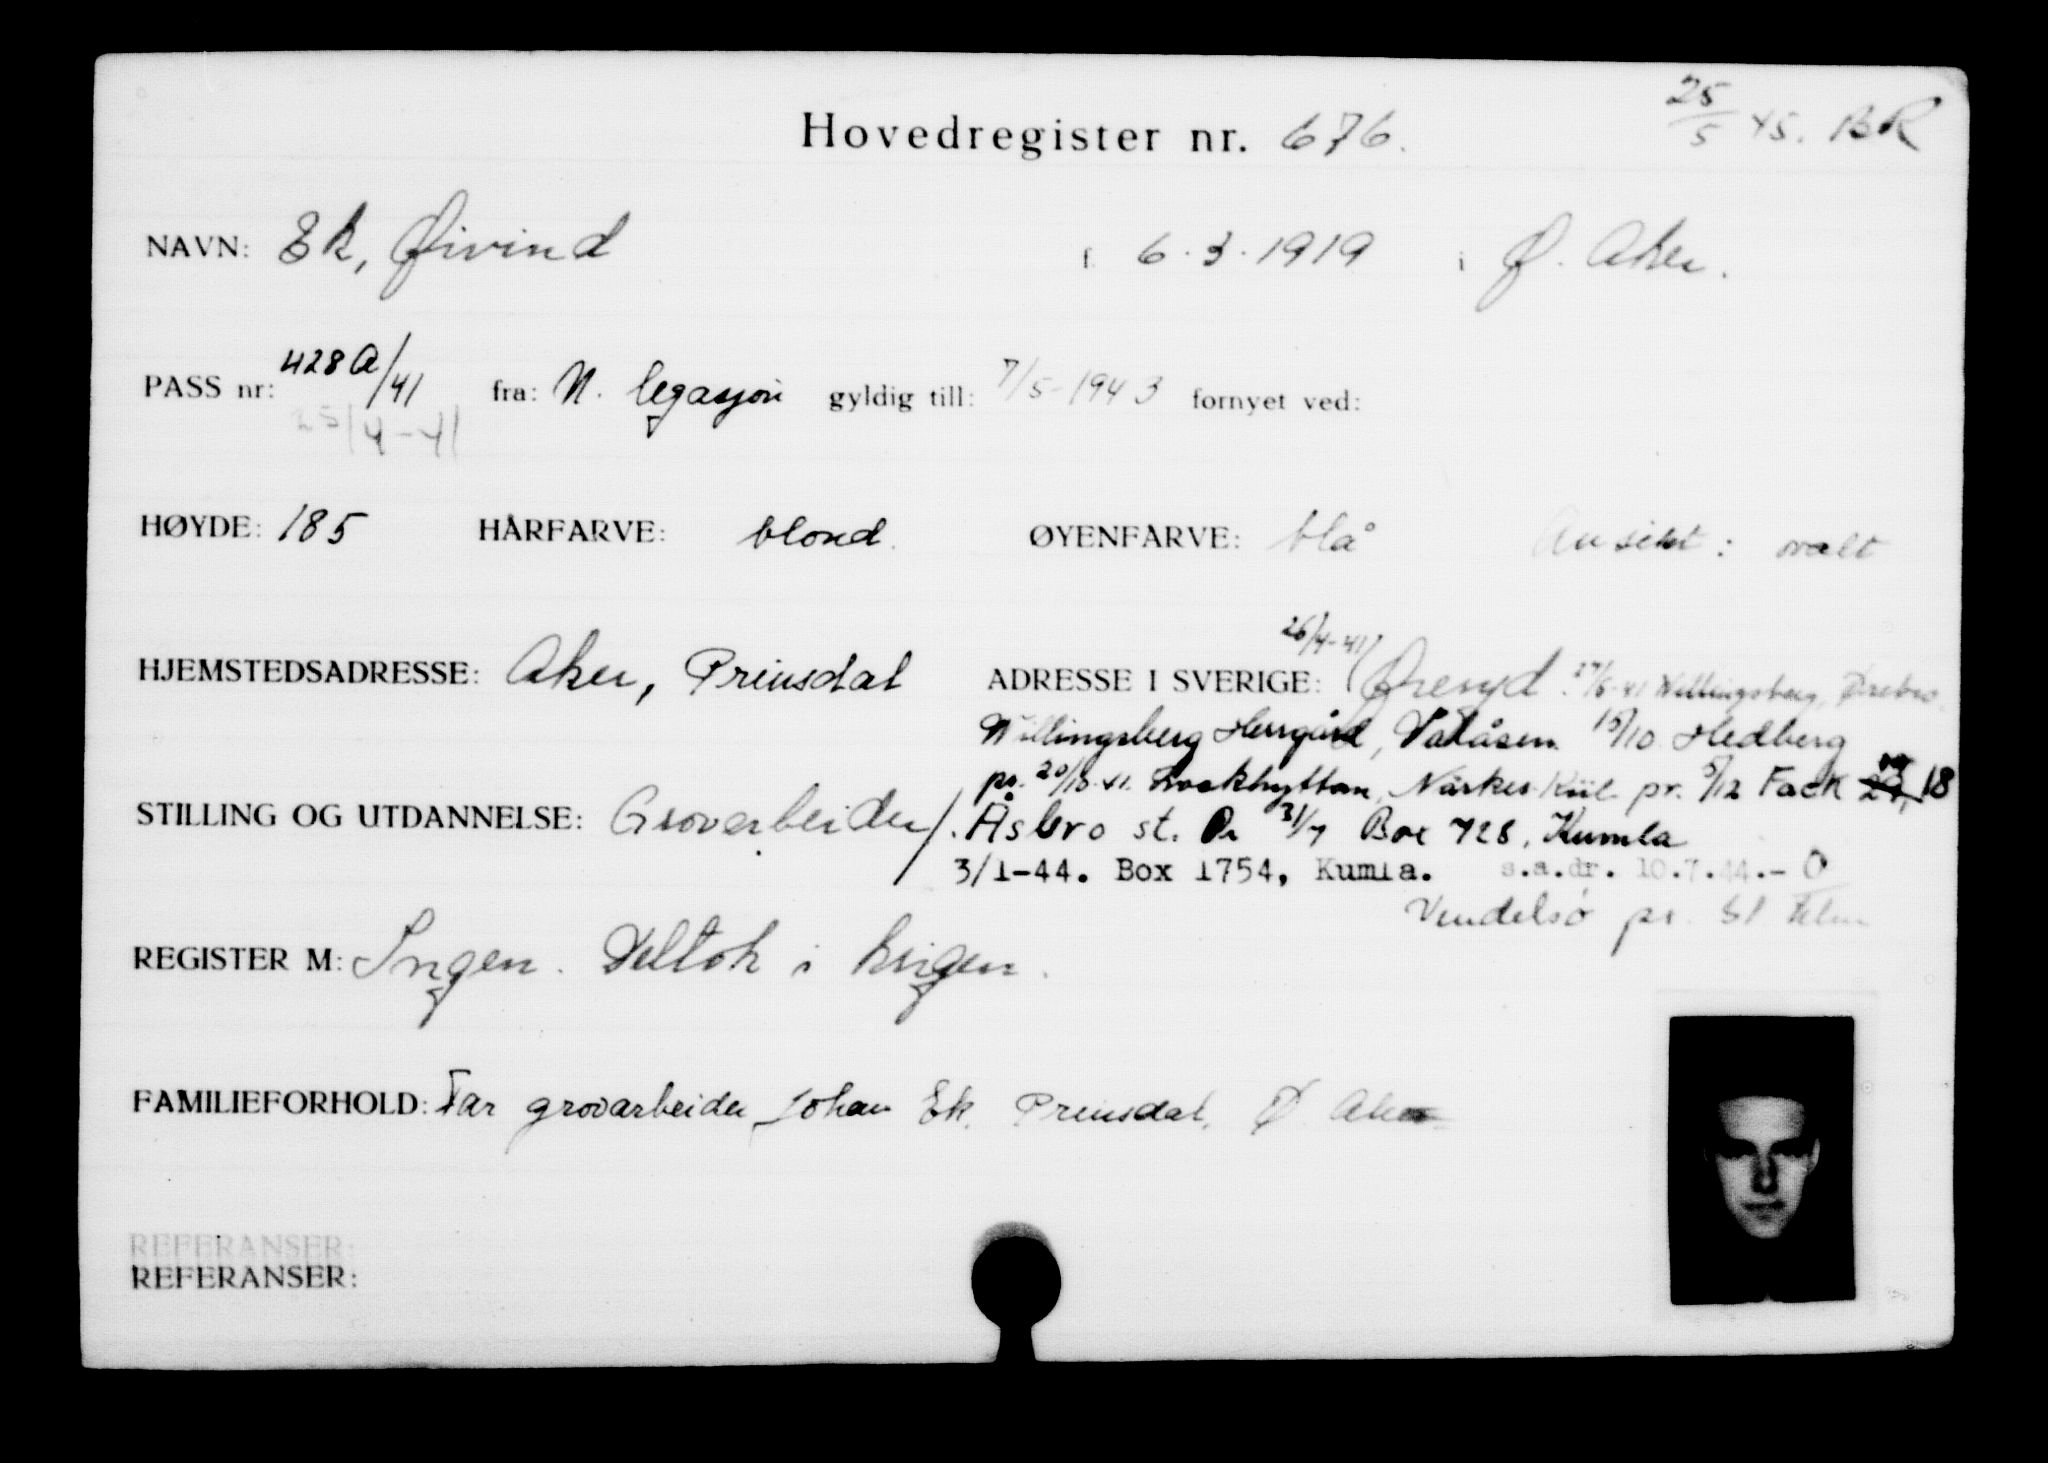 Hovedregister nr. 676. 25/5 45. BR
NAVN: Ek, Øivind f. 6.3.1919 i Ø. Aker.
PASS nr: 428 A/41 fra: N. legasjon gyldig till: 7/5-1943 fornyet ved:
25/4-41
HØYDE: 185 HÅRFARVE: blond. ØYENFARVE: blå Ansikt: ovalt
26/4-41
HJEMSTEDSADRESSE: Aker, Prinsdal ADRESSE I SVERIGE: Øreryd. Willingsberg, Ørebro.
Willingsberg Herrgård, Valåsen 15/10 Hedberg
pr. Närkes Kiil pr. 5/12 Fack 18
STILLING OG UTDANNELSE: Grovarbeider/. Åsbro st. 31/7 Box 728, Kumla
3/1-44. Box 1754, Kumla. s.a.dr. 10.7.44.- O
Vendelsö pr.
REGISTER M: Ingen. Deltok i krigen.
FAMILIEFORHOLD: Far grovarbeider Johan Ek, Prinsdal, Ø. Aker
REFERANSER:
REFERANSER: